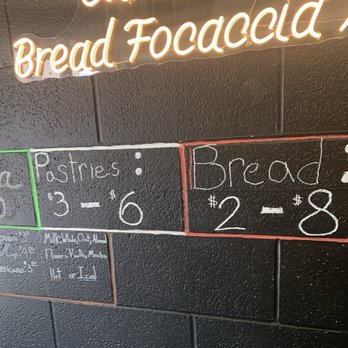 Bread Focaccia
Pastries:
$3 - $6
Bread:
$2 - $8
Milk: Whole, Oat, Almond
Flavors: Vanilla, Mocha
Hot or Iced